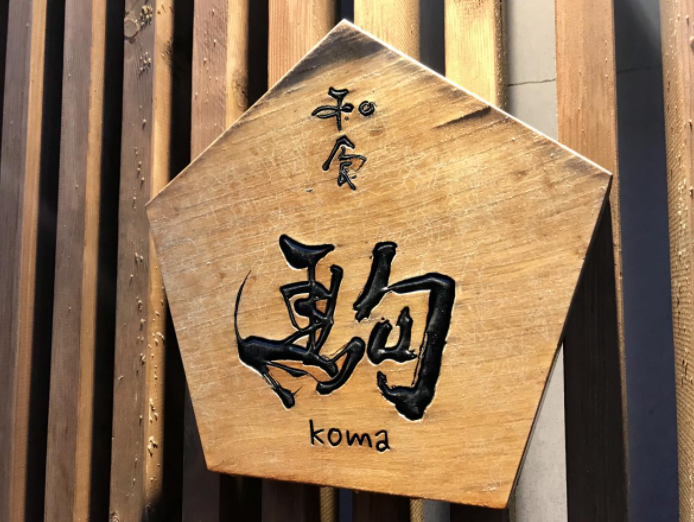 和食
駒
koma